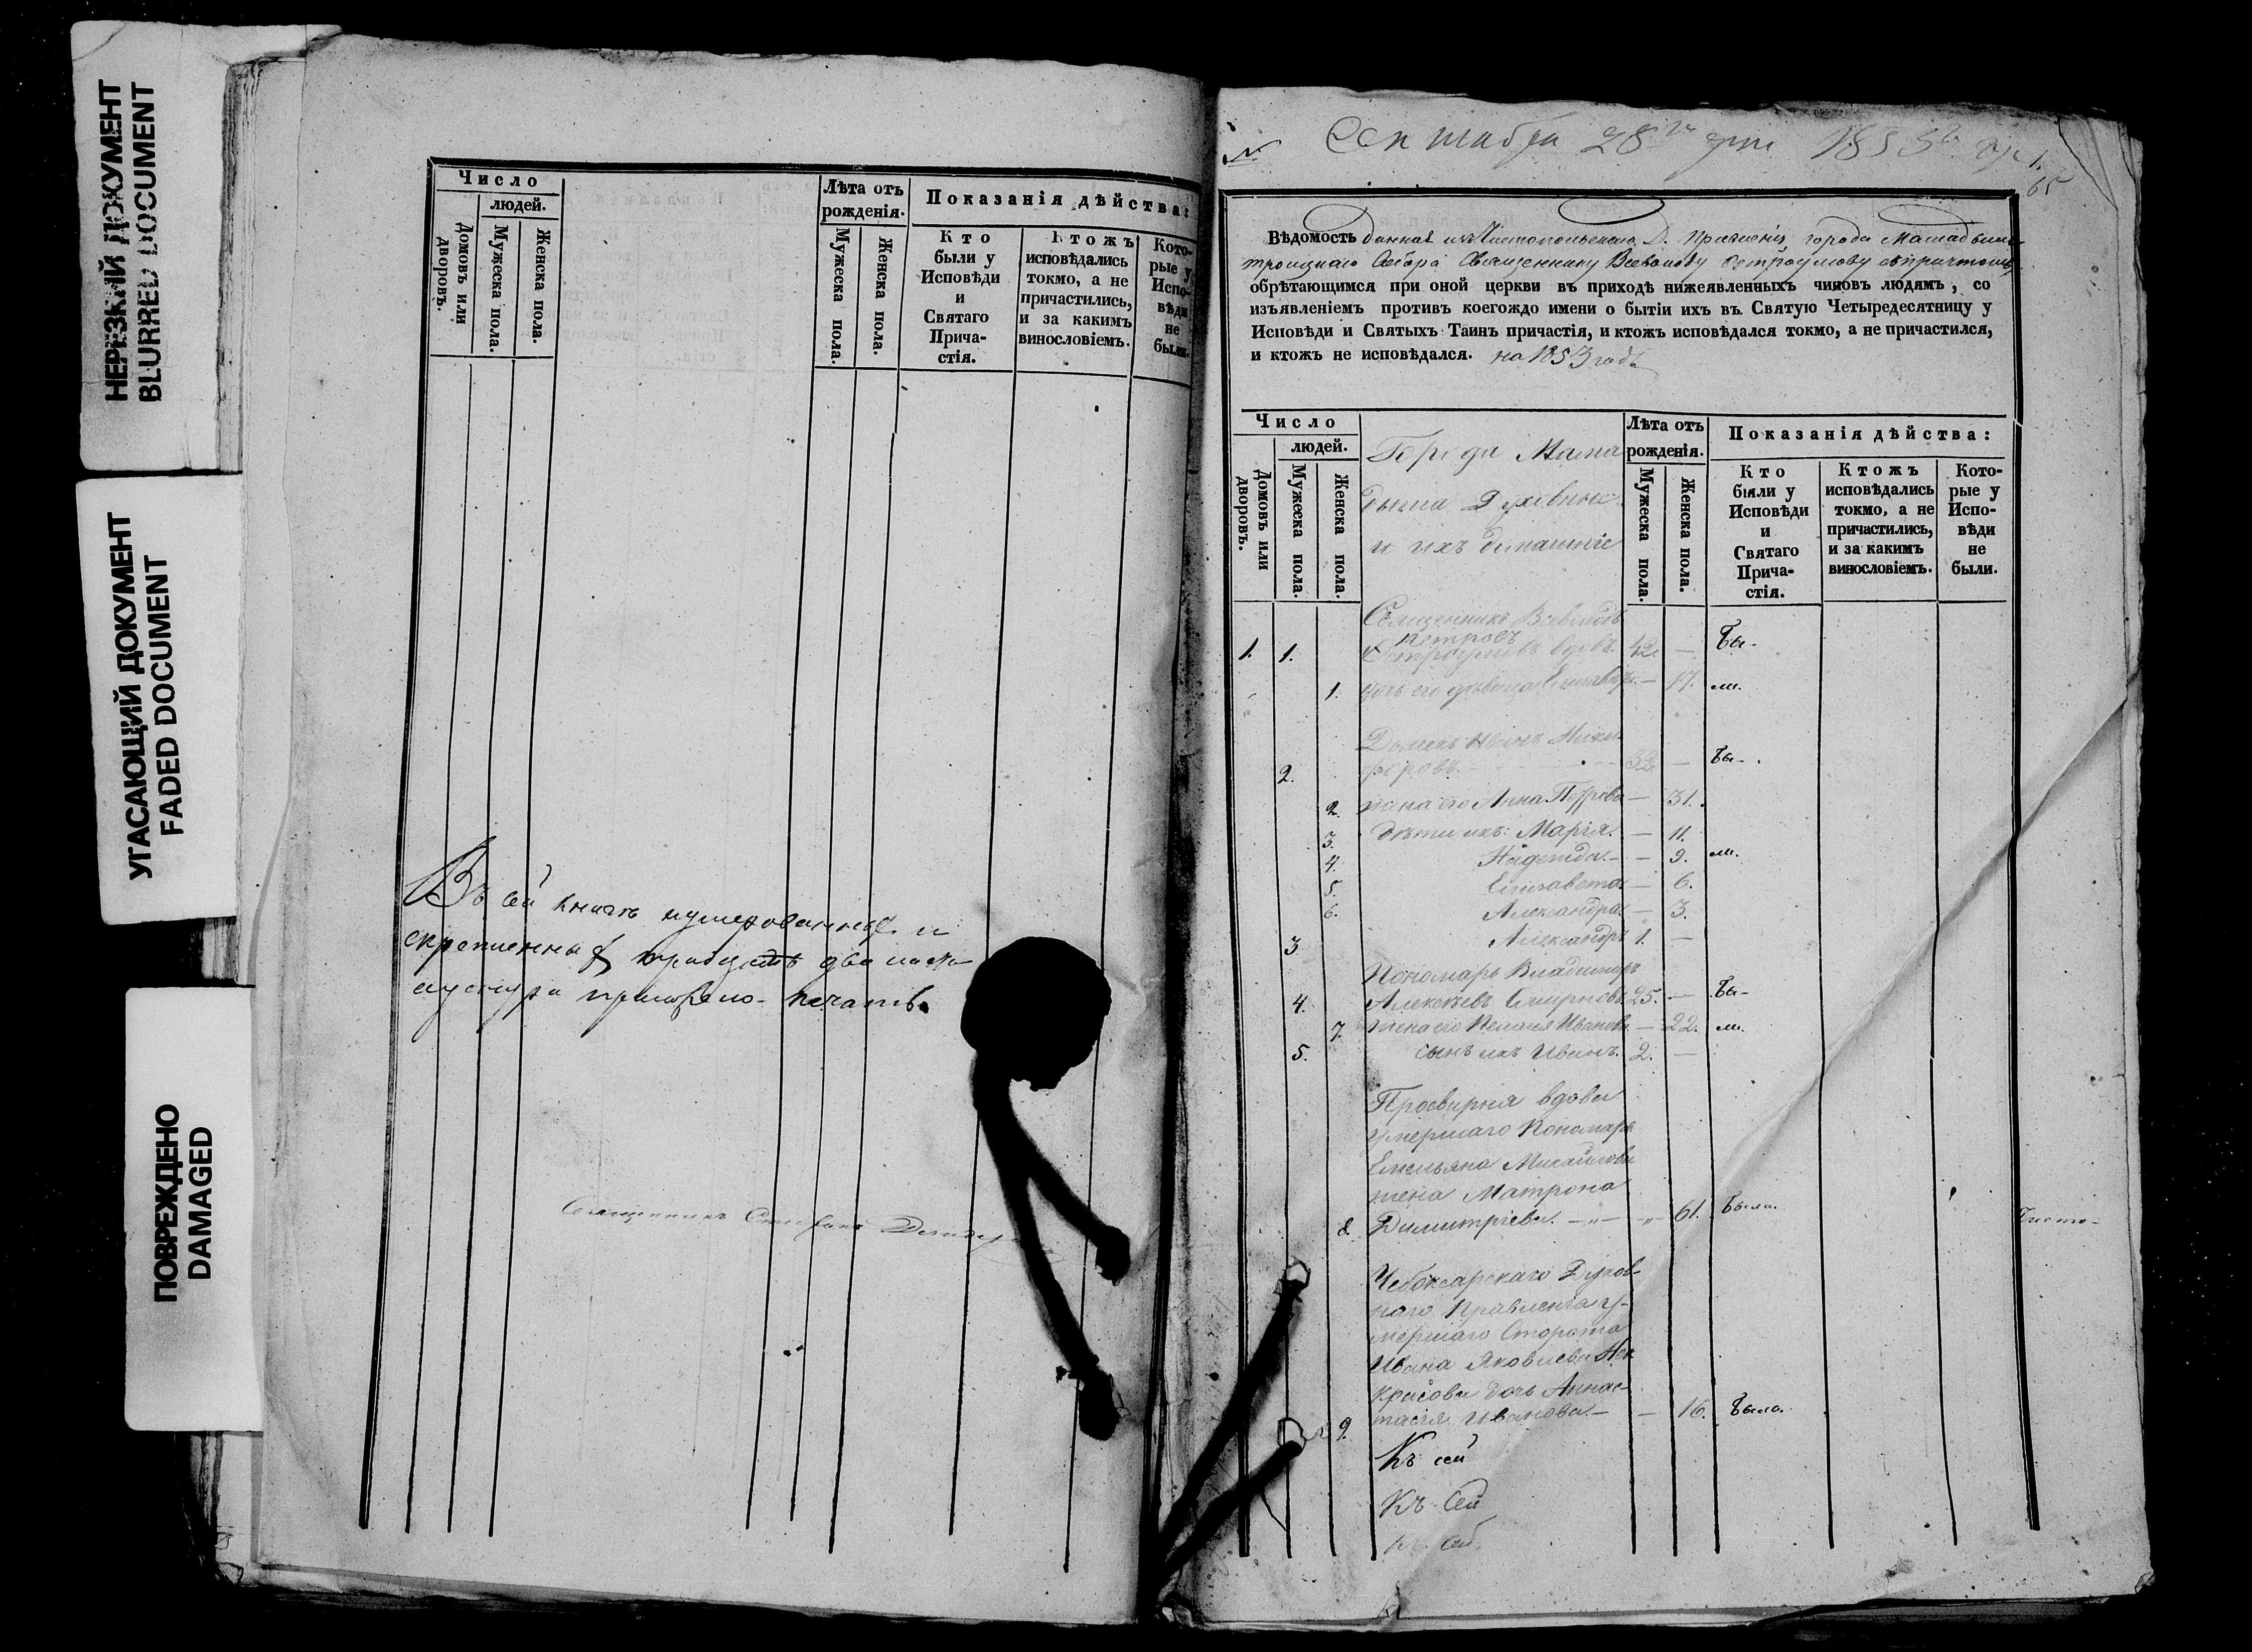 НЕРЕЗКИЙ ДОКУМЕНТ
BLURRED DOCUMENT
УГАСАЮЩИЙ ДОКУМЕНТ
FADED DOCUMENT
ПОВРЕЖДЕНО
DAMAGED
Число
людей.
Домовъ или
дворовъ.
Мужеска пола.
Женска пола.
Лѣта отъ
рожденія.
Мужеска пола.
Женска пола.
Показанія дѣйства:
Кто
были у
Исповѣди
и
Святаго
Прича-
стія.
Ктожъ
исповѣдались
токмо, а не
причастились,
и за какимъ
винословіемъ.
Кото-
рые у
Испо-
вѣди
не
были.
Въ сей книгѣ нумерованныхъ и
скрепленныхъ тридцать два листа
печать
Священникъ
№
Сентября 28го дня 1853го
1.
65
Вѣдомость данная изъ Чистопольскаго Д. Правленія города Мамадыша
Троицкаго Собора Священнику Всеволоду Остроумову съ причтомъ
обрѣтающимся при оной церкви въ приходѣ нижеявленныхъ чиновъ людямъ, со
изъявленіемъ противъ коегождо имени о бытіи ихъ въ Святую Четыредесятницу у
Исповѣди и Святыхъ Таинъ причастія, и ктожъ исповѣдался токмо, а не причастился,
и ктожъ не исповѣдался. на 1853 годъ
Число
людей.
Домовъ или
дворовъ.
Мужеска пола.
Женска пола.
Города Мама
дыша Духовные
и ихъ домашніе
Лѣта отъ
рожденія.
Мужеска пола.
Женска пола.
Показанія дѣйства:
Кто
были у
Исповѣди
и
Святаго
Прича-
стія.
Ктожъ
исповѣдались
токмо, а не
причастились,
и за какимъ
винословіемъ.
Кото-
рые у
Испо-
вѣди
не
были.
Священникъ Всеволодъ
Петровъ
1. 1. Остроумовъ вдовъ. 42. — Бы-
1. дочь его дѣвица Елизавета — 17. ли.
Дьяконъ Иванъ Ники
2. форовъ 32. — Бы-
2. жена его Анна Петрова — 31.
3. дѣти ихъ: Марія. — 11.
4. Надежда. — 9. ли.
5. Елизавета — 6.
6. Александра. — 3.
3 Александръ 1. —
Пономарь Владимиръ
4. Алексѣевъ Смирновъ 25. — Бы-
7. жена его Пелагея Иванова — 22. ли.
5. сынъ ихъ Иванъ. 2. —
Просвирня вдова
умершаго Пономаря
Емельяна Михайлова
жена Матрона
8. Димитріева. —„— „ 61. Была.
Чисто-
Чебоксарскаго Духов-
наго Правленія у-
мершаго Сторожа
Ивана Яковлева Не
красова дочь Аннас-
9. тасія Иванова — — 16. Была.
Къ сей
Къ Сей
Къ Сей